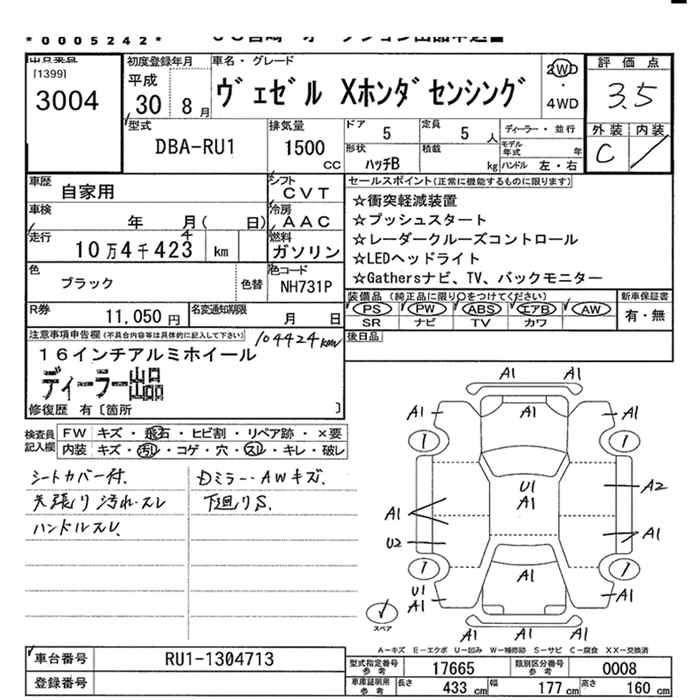 *0005242*
出品番号
[1399]
3004
初度登録年月
平成
30 8月
車名・グレード
ヴェゼル Xホンダセンシング
2WD
・
4WD
評価点
3.5
外装 内装
C
型式
DBA-RU1
排気量
1500
CC
ドア 5
定員 5 人
ディーラー・並行
形状
ハッチB
積載
kg
モデル年式 年
ハンドル 左・右
車歴
自家用
シフト
CVT
車検
年 月( 日)
冷房
AAC
走行
10万4千423 km
4
燃料
ガソリン
色
ブラック
色替
色コード
NH731P
R券
11,050円
名変通知期限
月 日
セールスポイント(正常に機能するものに限ります)
☆衝突軽減装置
☆プッシュスタート
☆レーダークルーズコントロール
☆LEDヘッドライト
☆Gathersナビ、TV、バックモニター
装備品(純正品に限り○をつけてください)
PS PW ABS エアB AW
SR ナビ TV カワ
新車保証書
有・無
後日品
注意事項申告欄(不具合内容等は具体的に記入して下さい)
104424km
16インチアルミホイール
ディーラー出品
修復歴 有〔箇所 〕
検査員記入欄
FW キズ・飛石・ヒビ割・リペア跡・×要
内装 キズ・汚レ・コゲ・穴・スレ・キレ・破レ
シートカバー付.
天張り汚れ・スレ
ハンドルスレ.
Dミラー・AWキズ.
下廻りS.
A1
A1
A1 A1
A1
U1
A1
A2
A1
A1
U2
A1
U1
A1
A1
A1
スペア
A-キズ E-エクボ U-凹み W-補修跡 S-サビ C-腐食 XX-交換済
車台番号 RU1-1304713
登録番号
型式指定番号 参考 17665
類別区分番号 参考 0008
車庫証明用 参考 長さ 433 cm 幅 177 cm 高さ 160 cm